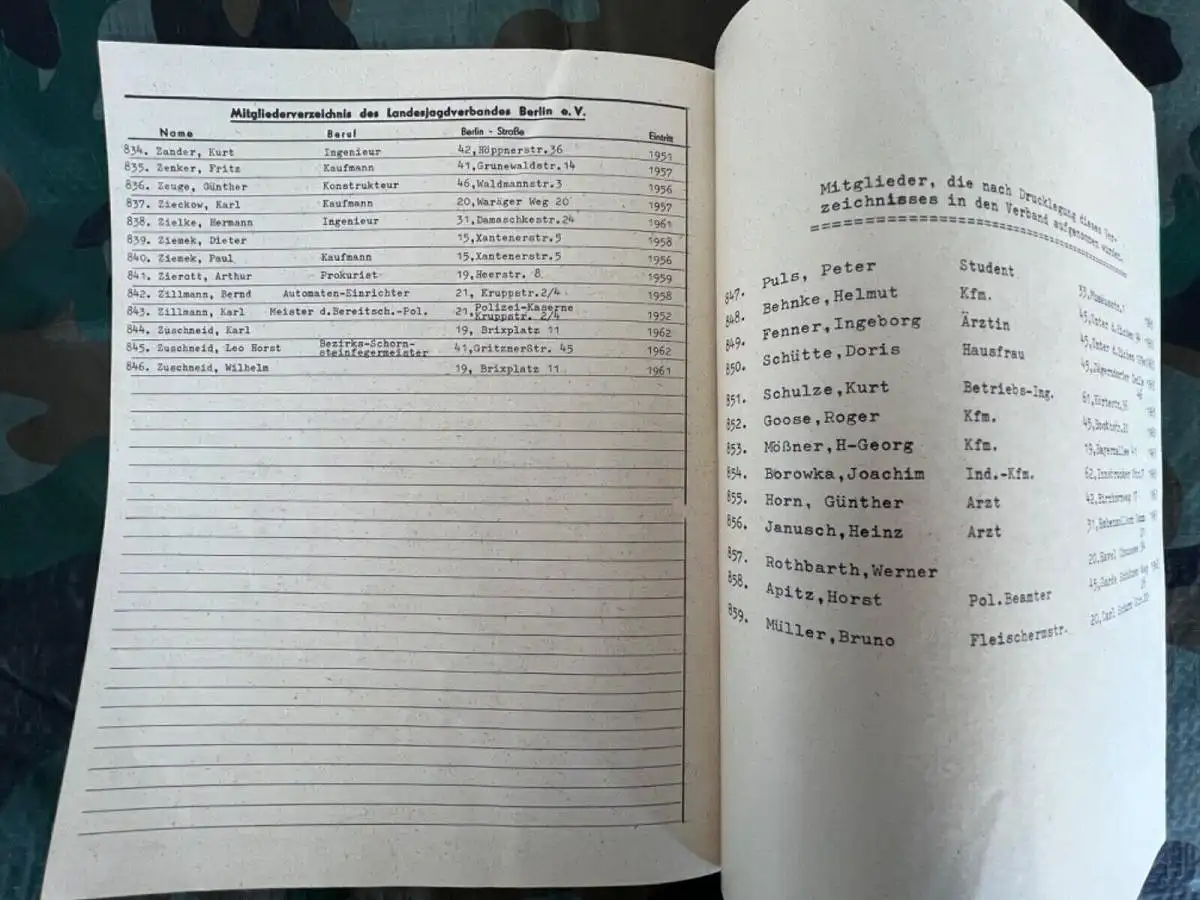 Mitgliederverzeichnis des Landesjagdverbandes Berlin e.V.
Name Beruf Berlin - Straße Eintritt
834. Zander, Kurt Ingenieur 42,Höppnerstr.36 1951
835. Zenker, Fritz Kaufmann 41,Grunewaldstr.14 1957
836. Zeuge, Günther Konstrukteur 46,Waldmannstr.3 1956
837. Zieckow, Karl Kaufmann 20,Waräger Weg 20 1957
838. Zielke, Hermann Ingenieur 31,Damaschkestr.24 1961
839. Ziemek, Dieter 15,Xantenerstr.5 1958
840. Ziemek, Paul Kaufmann 15,Xantenerstr.5 1956
841. Zierott, Arthur Prokurist 19,Heerstr. 8 1959
842. Zillmann, Bernd Automaten-Einrichter 21, Kruppstr.2/4 1958
843. Zillmann, Karl Meister d.Bereitsch.-Pol. 21,Polizei-Kaserne Kruppstr. 2/4 1952
844. Zuschneid, Karl 19, Brixplatz 11 1962
845. Zuschneid, Leo Horst Bezirks-Schorn-
steinfegermeister 41,Gritznerstr. 45 1962
846. Zuschneid, Wilhelm 19, Brixplatz 11 1961
Mitglieder, die nach Drucklegung dieses Ver-
zeichnisses in den Verband aufgenommen wurden.
847. Puls, Peter Student
848. Behnke,Helmut Kfm.
849. Fenner,Ingeborg Ärztin
850. Schütte,Doris Hausfrau
851. Schulze,Kurt Betriebs-Ing.
852. Goose,Roger Kfm.
853. Mößner,H-Georg Kfm. 19,Bayernallee
854. Borowka,Joachim Ind.-Kfm. 62,Innsbrucker Str.7
855. Horn, Günther Arzt
856. Janusch,Heinz Arzt
857. Rothbarth,Werner
858. Apitz,Horst Pol.Beamter
859. Müller,Bruno Fleischermstr.